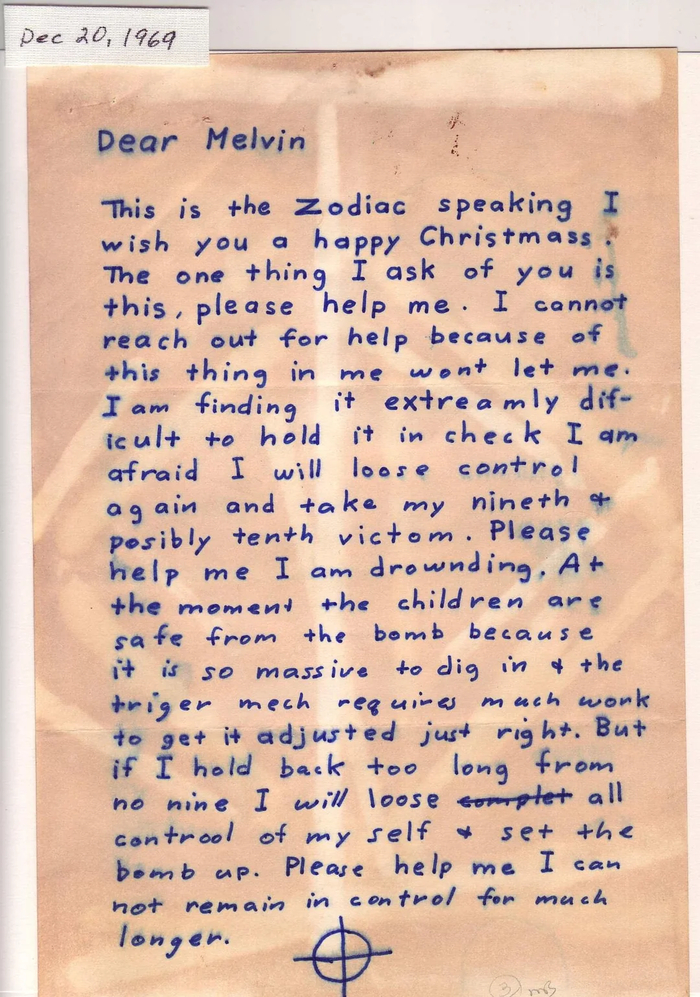 Dec 20, 1969
Dear Melvin
This is the Zodiac speaking I
wish you a happy Christmass.
The one thing I ask of you is
this, please help me. I cannot
reach out for help because of
this thing in me wont let me.
I am finding it extreamly dif-
icult to hold it in check I am
afraid I will loose control
again and take my nineth &
posibly tenth victom. Please
help me I am drownding. At
the moment the children are
safe from the bomb because
it is so massive to dig in & the
triger mech requires much work
to get it adjusted just right. But
if I hold back too long from
no nine I will loose complet all
controol of my self & set the
bomb up. Please help me I can
not remain in control for much
longer.